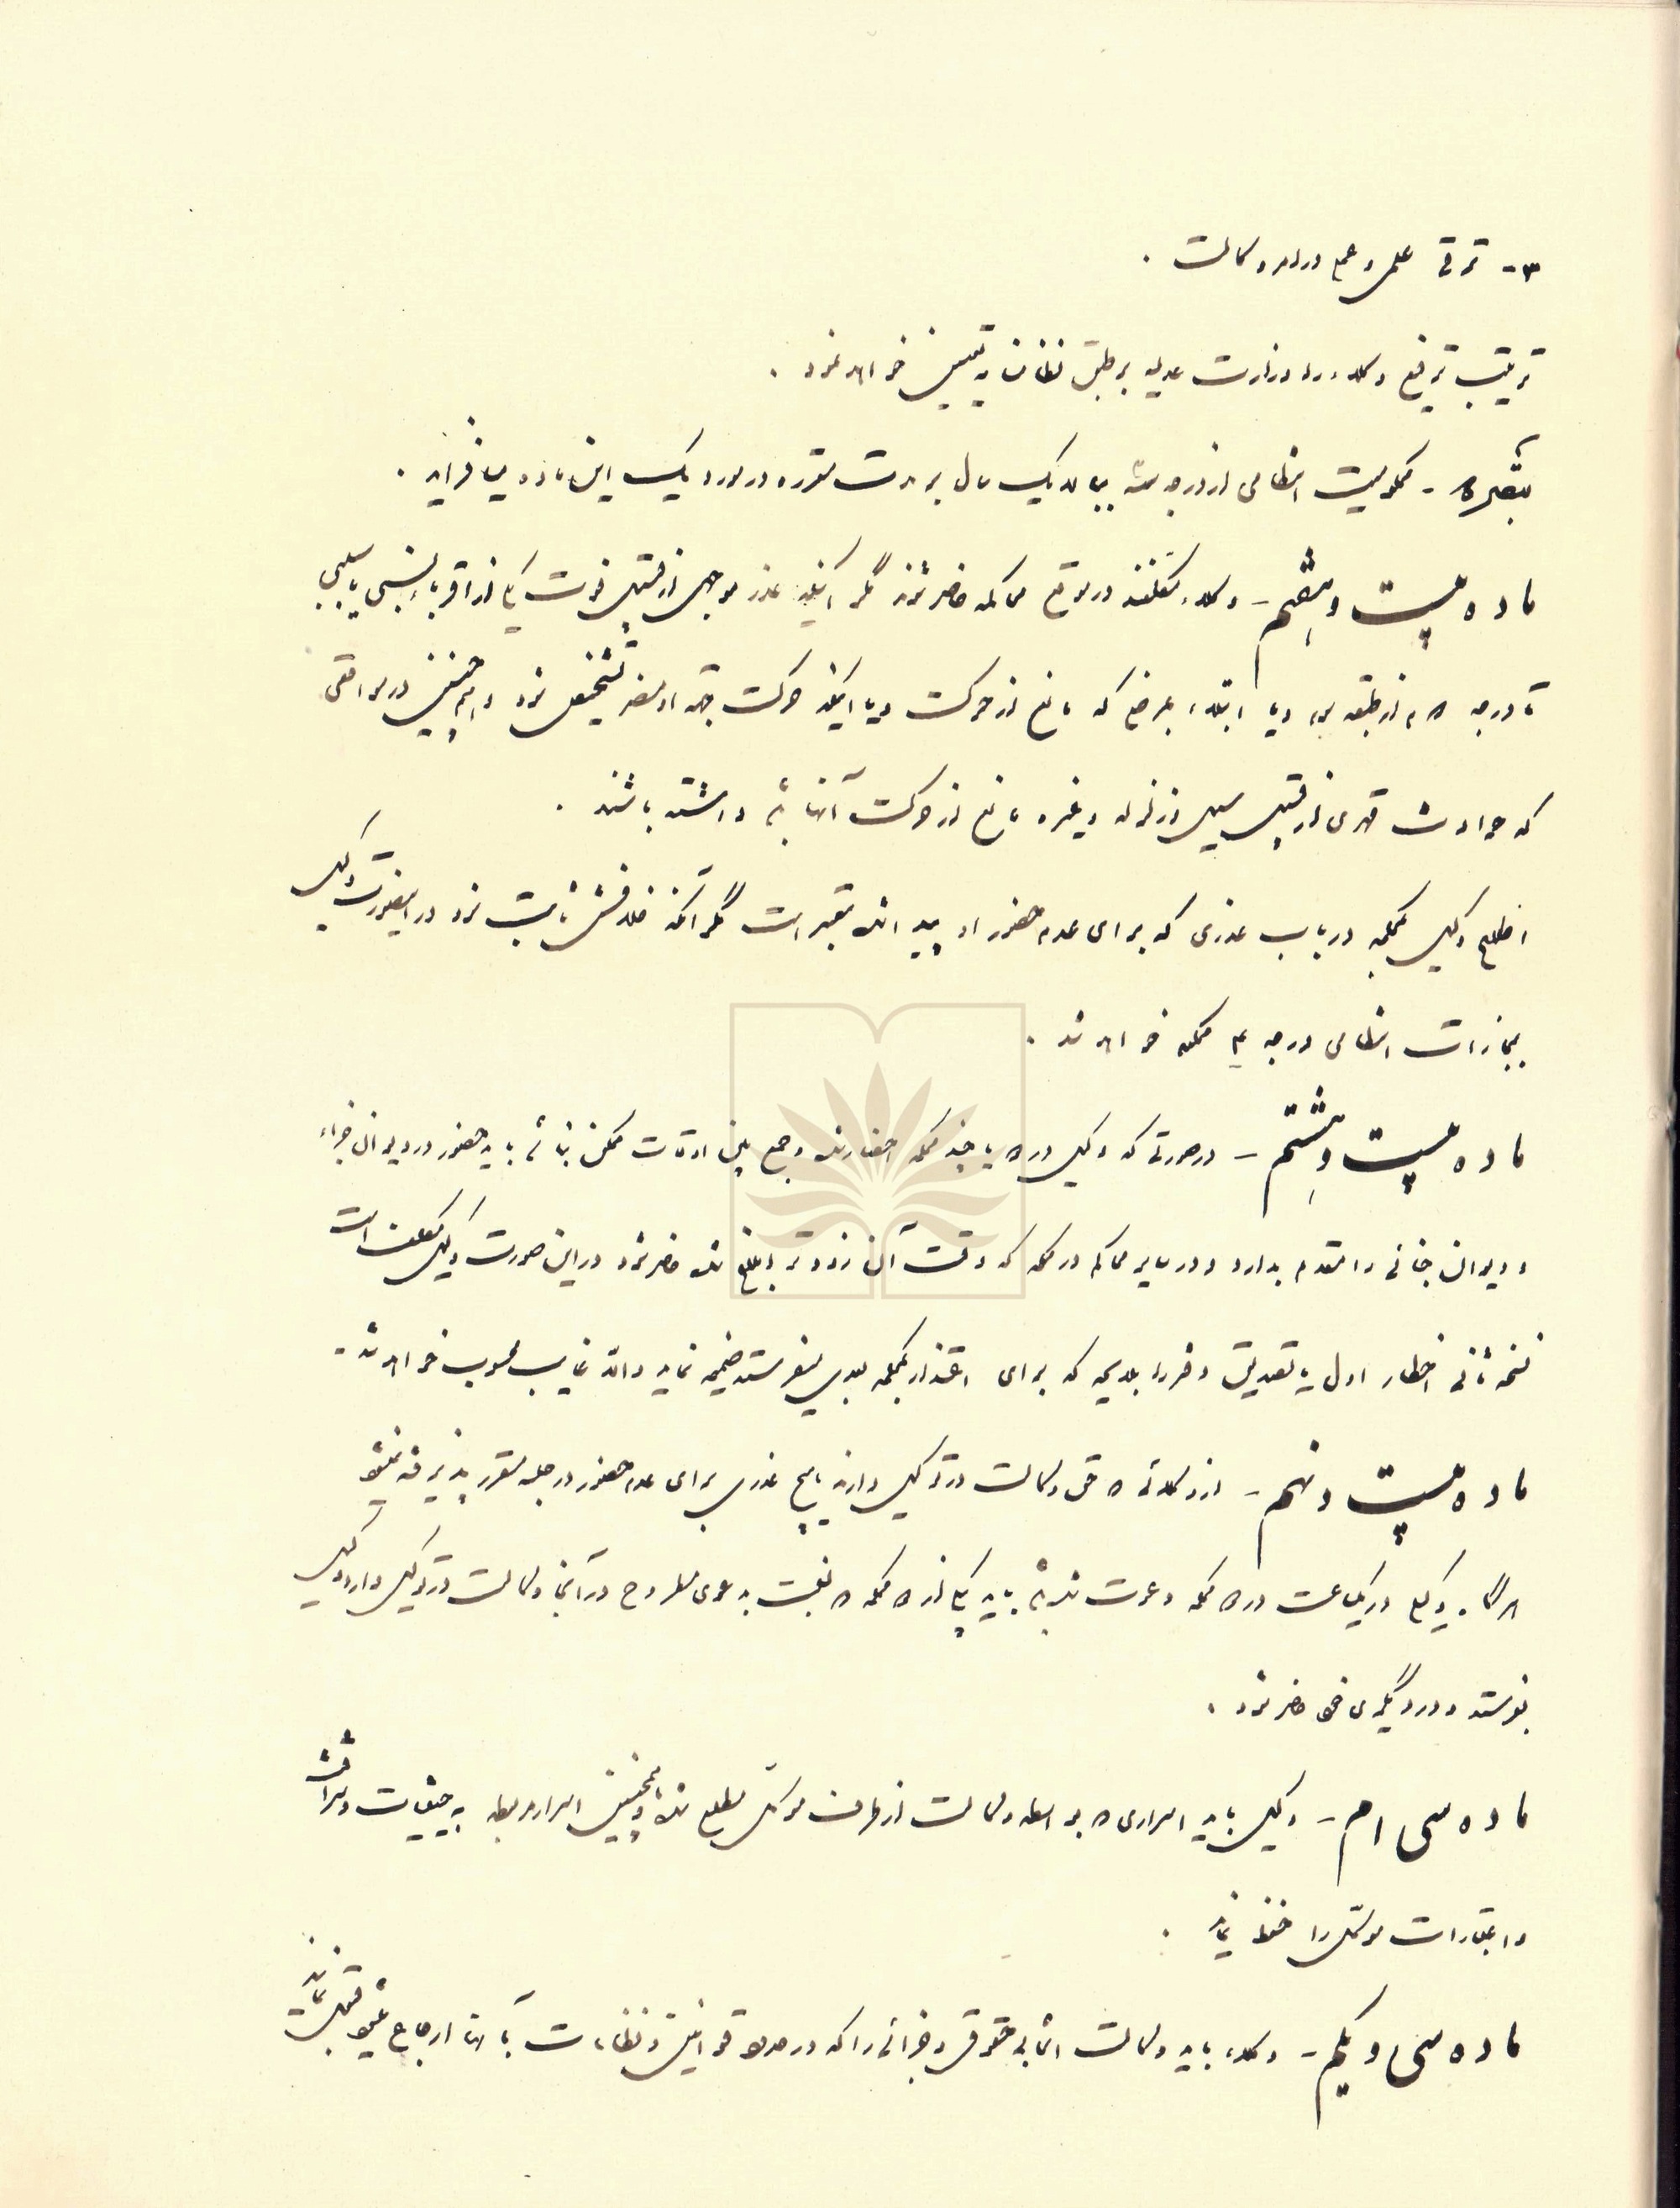 ۳- ترقی علمی و عملی در امر وکالت .
ترتیب ترفیع وکلاء را وزارت عدلیه بر طبق نظامنامه تعیین خواهد نمود .
تبصره - محکومیت انتظامی از درجه سه ببالا یک سال بر مدت مقرره در مورد یک این ماده میافزاید .
ماده بیست و هفتم - وکلاء مکلفند در موقع محاکمه حاضر شوند مگر اینکه عذر موجهی از قبیل فوت یکی از اقرباء نسبی یا سببی
تا درجه اول از طبقه سوم و یا ابتلاء بمرضی که مانع از حرکت و یا اینکه حرکت جهة او مضر تشخیص شود و همچنین در مواقعی
که حوادث قهری از قبیل سیل و زلزله و غیره مانع از حرکت آنها باشد داشته باشند .
اطلاع وکیل بمحکمه در باب عذری که برای عدم حضور او پیدا شده معتبر است مگر آنکه خلافش ثابت شود در اینصورت وکیل
بمجازات انتظامی درجه ۴ محکوم خواهد شد .
ماده بیست و هشتم - در صورتی که وکیل در دو یا چند محکمه احضار شده و جمع بین اوقات ممکن نباشد باید حضور در دیوان جزاء
و دیوان جنائی را مقدم بدارد و در سایر محاکم در محکمه که وقت آن زودتر ابلاغ شده حاضر شود در این صورت وکیل مکلف است
نسخه ثانی اخطار اول یا تصدیق دفتر را بلایحه که برای اعتذار بمحکمه بعدی میفرستد ضمیمه نماید والا غایب محسوب خواهد شد .
ماده بیست و نهم - از وکلائی که حق وکالت در توکیل دارند هیچ عذری برای عدم حضور در جلسه مقرر پذیرفته نمیشود
هرگاه وکیلی در یکساعت در دو محکمه دعوت شده باشد باید یکی از دو محکمه که نسبت بدعوی مطروح در آنجا وکالت در توکیل دارد وکیل
بفرستد و در دیگری خود حاضر شود .
ماده سی ام - وکیل باید اسراری که بواسطه وکالت از طرف موکل مطلع شده و همچنین اسرار مربوط به حیثیات و شرافت
و اعتبارات موکل را حفظ نماید .
ماده سی و یکم - وکلاء باید وکالت انتخابی حقوقی و جزائی را که در حدود قوانین و نظامات بآنها ارجاع میشود قبول نمایند .